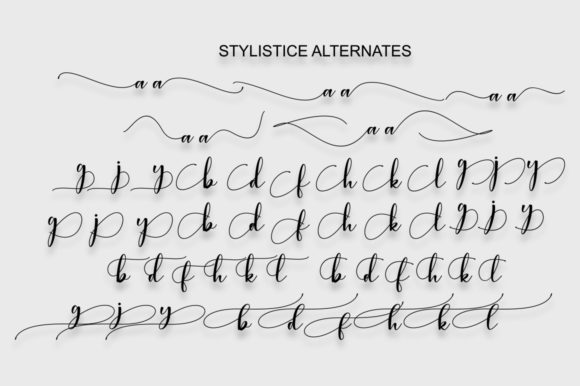 STYLISTICE ALTERNATES
a a a a a a
a a a a
g j y b d f h k l g j y
g j y b d f h k l g j y
b d f h k l b d f h k l
g j y b d f h k l